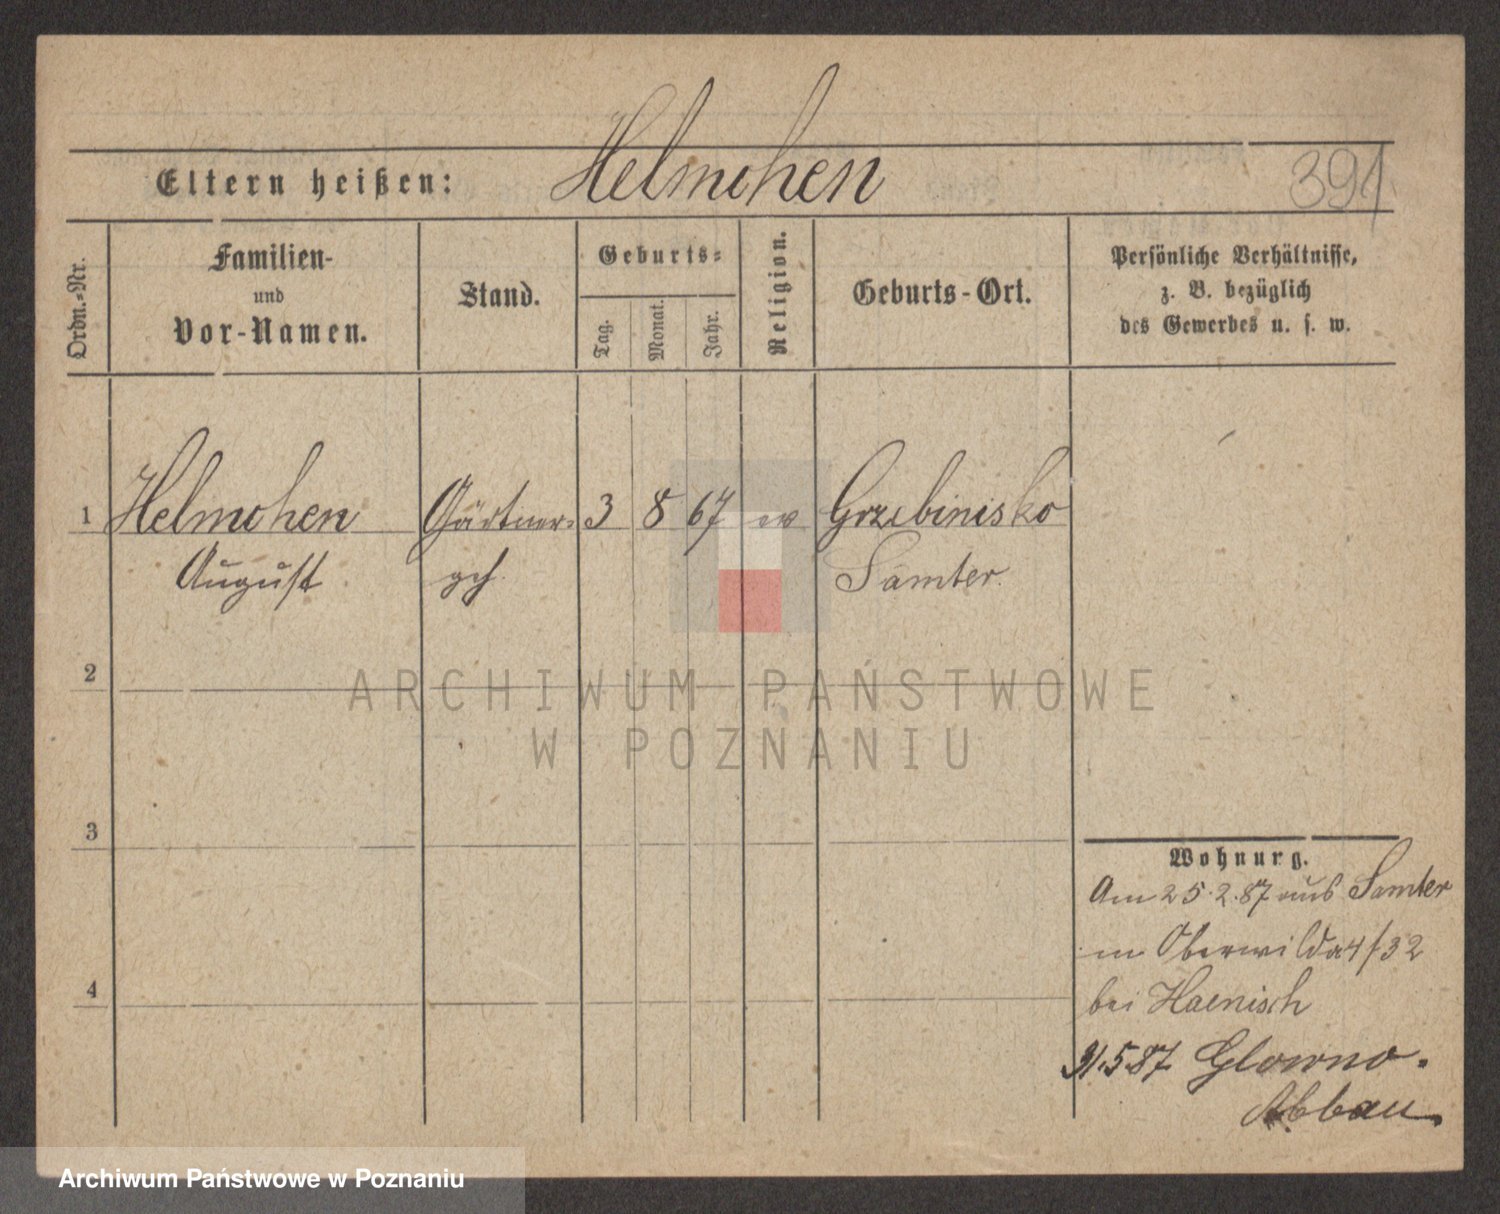 Helmchen
Eltern heißen:
391
Ordn.-Nr.
Familien-
und
Vor-Namen.
Stand.
Geburts-
Tag.
Monat.
Jahr.
Religion.
Geburts-Ort.
Persönliche Verhältnisse,
z. B. bezüglich
des Gewerbes u. s. w.
1 Helmchen Gärtner- 3 8 67 ev Grzebinisko
August geh Samter.
2
ARCHIWUM PAŃSTWOWE
W POZNANIU
3
Wohnung.
Am 25.2.87 aus Samter
in Oberwilda 4/32
4
bei Haenisch
5.87 Glowno.
Abbau.
Archiwum Państwowe w Poznaniu